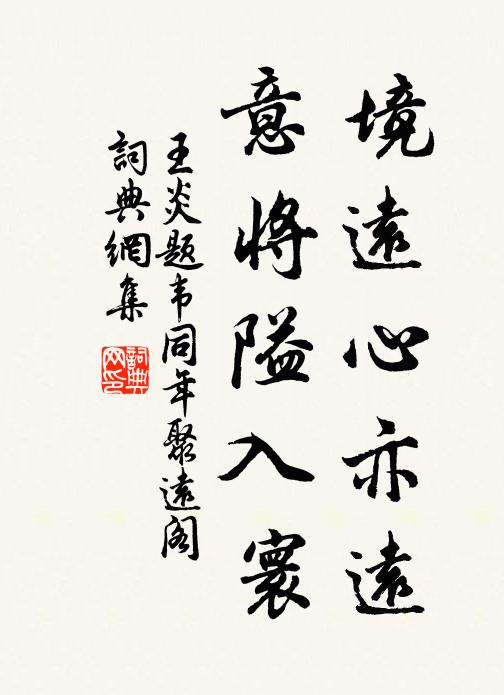 境遠心亦遠
意將隘入寰
王炎題韦同年聚遠阁
詞典網集
詞典网印